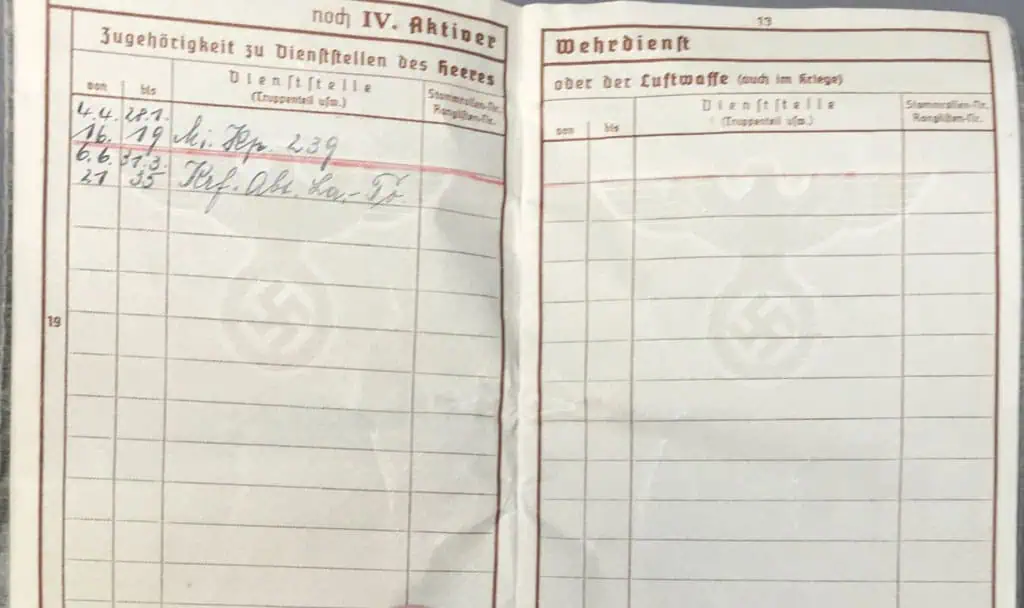 noch IV. Aktiver
Zugehörigkeit zu Dienststellen des Heeres
von
bis
Dienststelle
(Truppenteil usw.)
Stammrollen-Nr.
Ranglisten-Nr.
4.4. 28.1.
16. 19 Mi. Kp. 239
6.6. 31.3.
21 35 Krf. Abt.
19
13
Wehrdienst
oder der Luftwaffe (auch im Kriege)
von
bis
Dienststelle
(Truppenteil usw.)
Stammrollen-Nr.
Ranglisten-Nr.